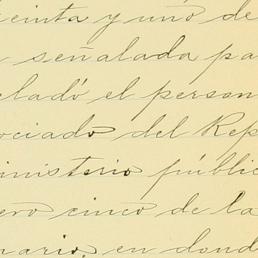 einta y uno de
señalada pa
eladó el person
ociado del Rep
inisterio públic
ero cinco de la
nario, en dond